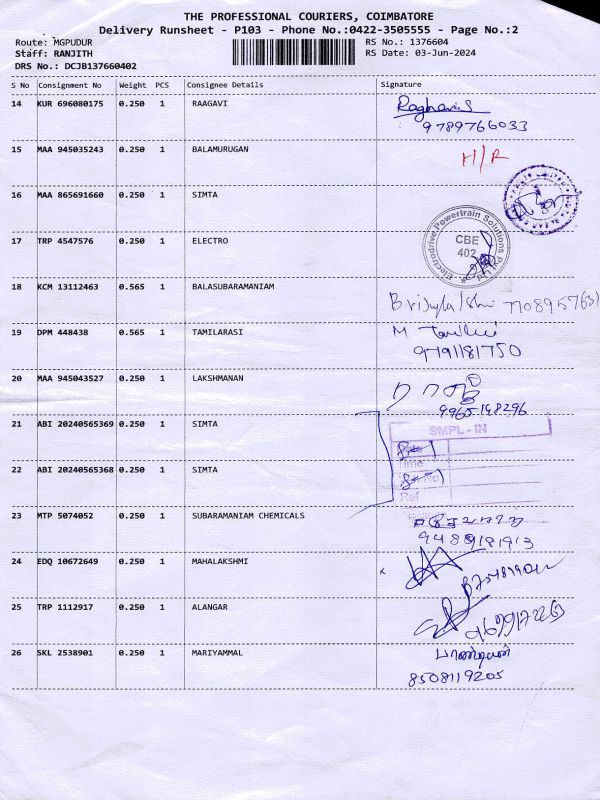 THE PROFESSIONAL COURIERS, COIMBATORE
Delivery Runsheet - P103 - Phone No.:0422-3505555 - Page No.:2
Route: MGPUDUR
RS No.: 1376604
Staff: RANJITH
RS Date: 03-Jun-2024
DRS No.: DCJB137660402
S No Consignment No Weight PCS Consignee Details Signature
14 KUR 696080175 0.250 1 RAAGAVI
9789766033
15 MAA 945035243 0.250 1 BALAMURUGAN H/R
16 MAA 865691660 0.250 1 SIMTA
Electrodrive Powertrain Solutions Pvt Ltd
17 TRP 4547576 0.250 1 ELECTRO CBE
402
18 KCM 13112463 0.565 1 BALASUBARAMANIAM
19 DPM 448438 0.565 1 TAMILARASI M
9791181750
20 MAA 945043527 0.250 1 LAKSHMANAN
9965198296
21 ABI 20240565369 0.250 1 SIMTA SMPL - IN
Time
22 ABI 20240565368 0.250 1 SIMTA
Ref
23 MTP 5074052 0.250 1 SUBARAMANIAM CHEMICALS
24 EDQ 10672649 0.250 1 MAHALAKSHMI
25 TRP 1112917 0.250 1 ALANGAR
26 SKL 2538901 0.250 1 MARIYAMMAL பாண்டியன்
8508119205